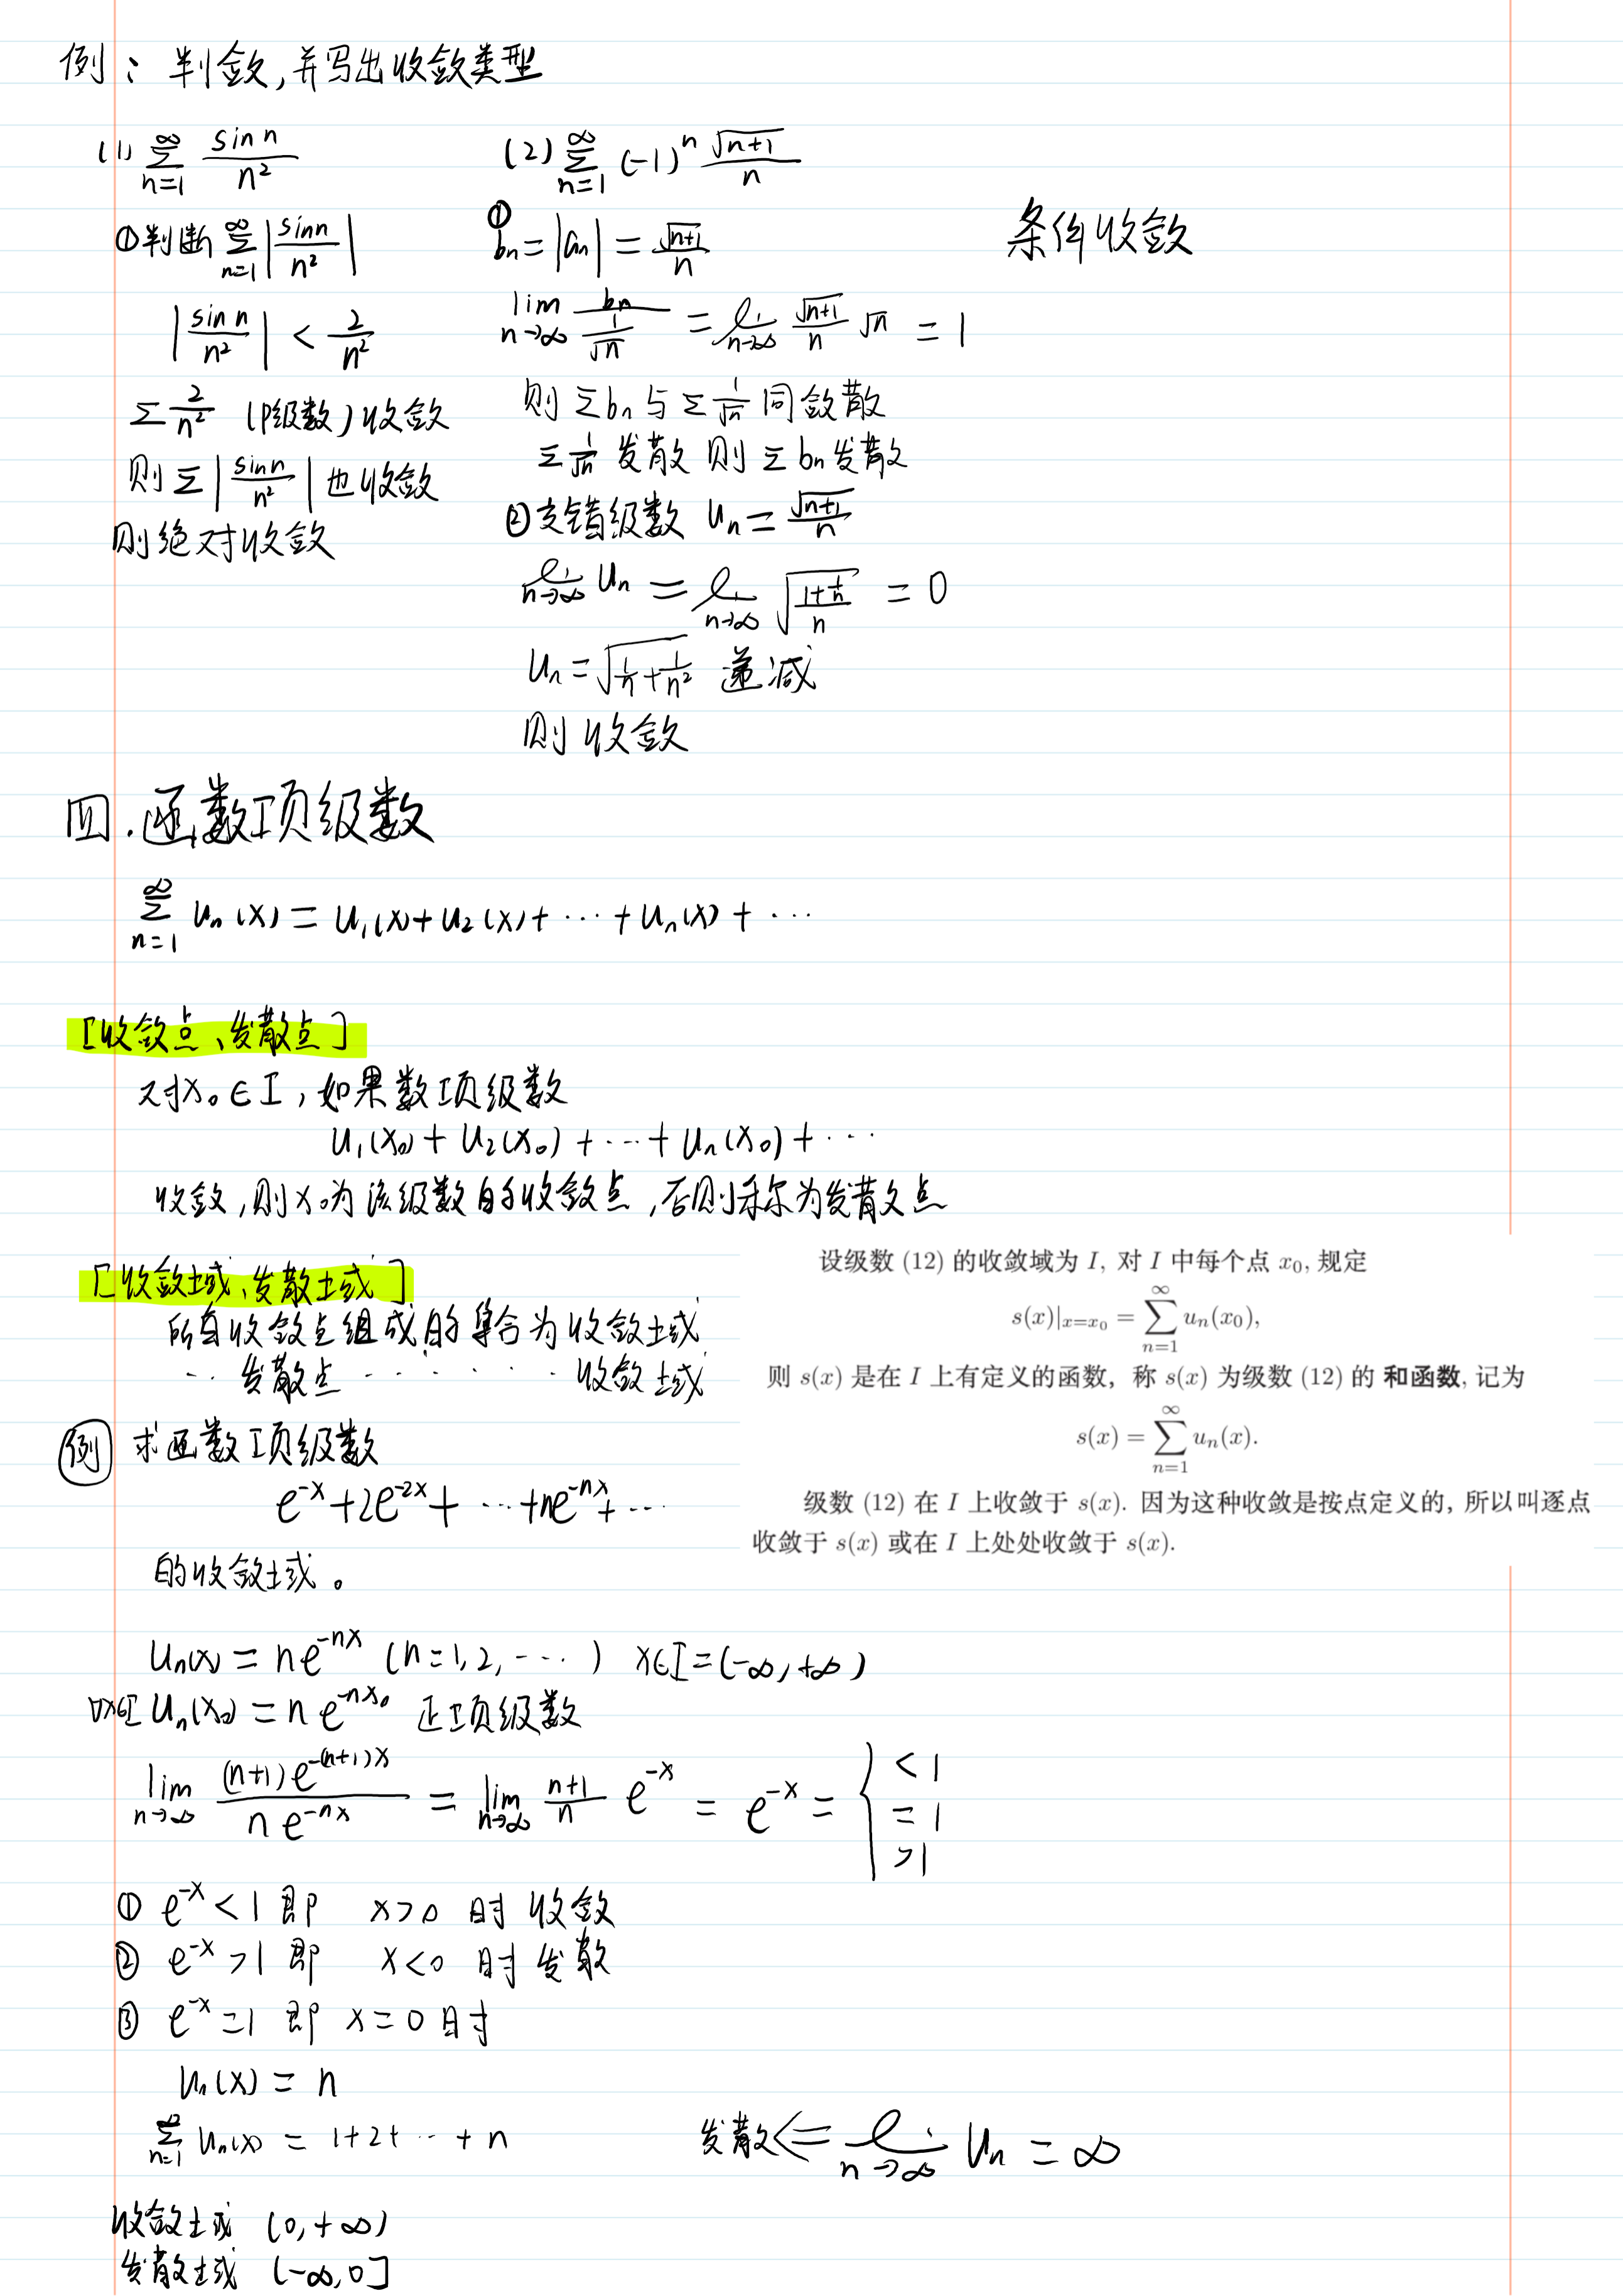 例：判敛,并写出收敛类型
(1) ∑_{n=1}^{∞} sin n / n²
① 判断 ∑_{n=1}^{∞} |sin n / n²|
|sin n / n²| < 2/n²
∑ 2/n² (P级数) 收敛
则 ∑ |sin n / n²| 也收敛
则绝对收敛
(2) ∑_{n=1}^{∞} (-1)^n √(n+1) / n
① bn = |an| = √(n+1) / n
lim_{n→∞} bn / (1/√n) = lim_{n→∞} √(n+1)/n √n = 1
则 ∑bn 与 ∑ 1/√n 同敛散
∑ 1/√n 发散 则 ∑ bn 发散
② 交错级数 Un = √(n+1) / n
lim_{n→∞} Un = lim_{n→∞} √((1+1/n)/n) = 0
Un = √(1/n + 1/n²) 递减
则收敛
条件收敛
四.函数项级数
∑_{n=1}^{∞} un(x) = u1(x)+u2(x)+⋯+un(x)+⋯
[收敛点、发散点]
对x₀∈I, 如果数项级数
u1(x₀)+u2(x₀)+⋯+un(x₀)+⋯
收敛,则x₀为该级数的收敛点,否则称为发散点
[收敛域、发散域]
所有收敛点组成的集合为收敛域
‥ 发散点 ‥‥‥ 收敛域
设级数 (12) 的收敛域为 I, 对 I 中每个点 x₀, 规定
s(x)|_{x=x₀} = ∑_{n=1}^{∞} un(x₀),
则 s(x) 是在 I 上有定义的函数, 称 s(x) 为级数 (12) 的 和函数, 记为
s(x) = ∑_{n=1}^{∞} un(x).
级数 (12) 在 I 上收敛于 s(x). 因为这种收敛是按点定义的, 所以叫逐点
收敛于 s(x) 或在 I 上处处收敛于 s(x).
例 求函数项级数
e^{-x}+2e^{-2x}+⋯+ne^{-nx}+⋯
的收敛域。
Un(x) = ne^{-nx} (n=1,2,⋯) x∈I=(-∞,+∞)
∀x∈I Un(x₀) = ne^{-nx₀} 正项级数
lim_{n→∞} (n+1)e^{-(n+1)x} / ne^{-nx} = lim_{n→∞} (n+1)/n e^{-x} = e^{-x} = { <1
=1
>1
① e^{-x}<1 即 x>0 时 收敛
② e^{-x}>1 即 x<0 时 发散
③ e^{-x}=1 即 x=0 时
Un(x) = n
∑_{n=1}^{∞} Un(x) = 1+2+⋯+n 发散 ⟸ lim_{n→∞} Un = ∞
收敛域 (0,+∞)
发散域 (-∞,0]